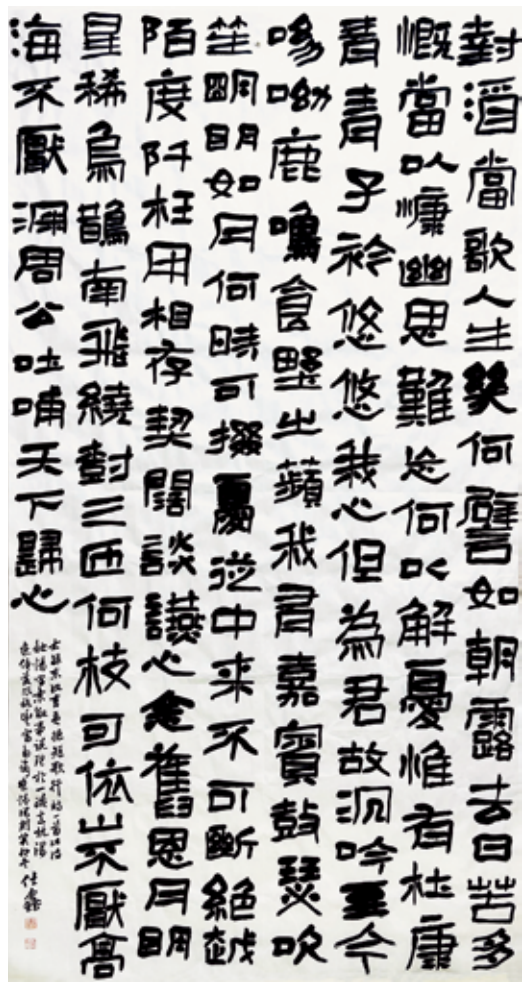 對酒當歌人生幾何譬如朝露去日苦多
慨當以慷幽思難忘何以解憂惟有杜康
青青子衿悠悠我心但為君故沉吟至今
呦呦鹿鳴食野之蘋我有嘉賓鼓瑟吹
笙明明如月何時可掇憂從中来不可斷絕越
陌度阡枉用相存契闊談讌心念舊恩月明
星稀烏鵲南飛繞對三匝何枝可依山不厭高
海不厭深周公吐哺天下歸心